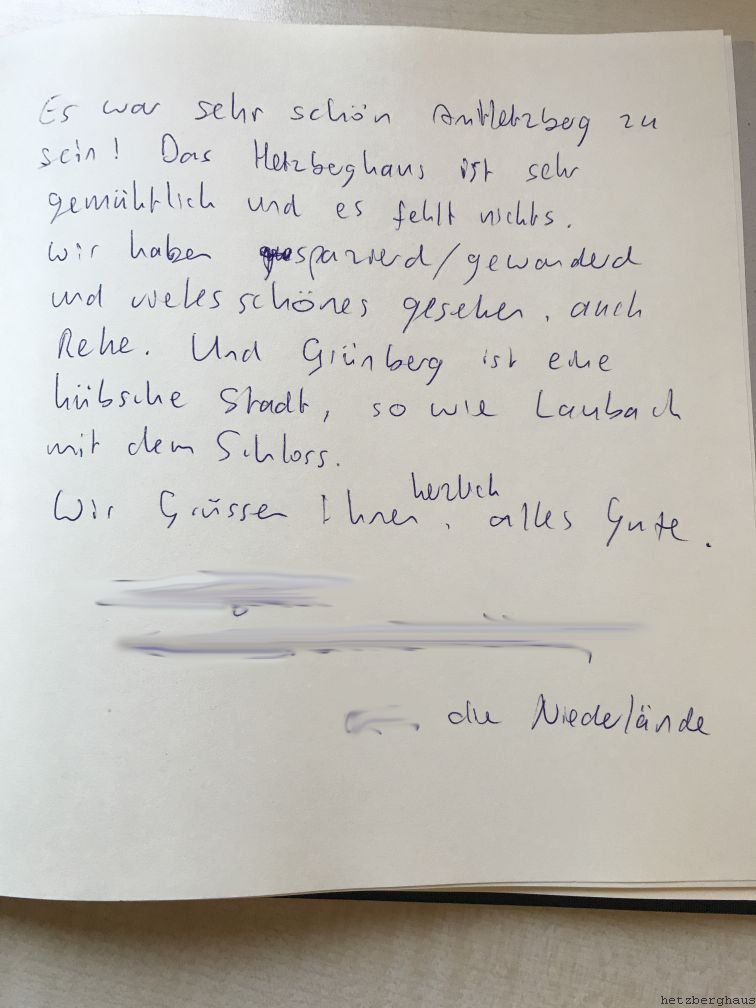 Es war sehr schön Am Hetzberg zu
sein! Das Hetzberghaus ist sehr
gemühtlich und es fehlt nichts.
Wir haben spazierd/gewanderd
und vieles schönes gesehen, auch
Rehe. Und Grünberg ist eine
hübsche Stadt, so wie Laubach
mit dem Schloss.
herzlich
Wir Grüssen Ihnen, alles Gute.
die Niederlände
hetzberghaus